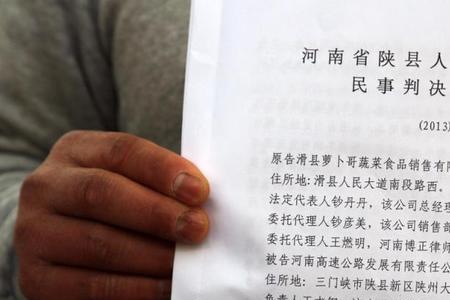 河南省陕县人
民事判决
(2013)
原告滑县萝卜哥蔬菜食品销售有限
住所地:滑县人民大道南段路西。
法定代表人钞丹丹,该公司总经理
委托代理人钞彦美,该公司销售部
委托代理人王燃明,河南博正律师
被告河南高速公路发展有限责任公
住所地:三门峡市陕县新区陕州大
负责人